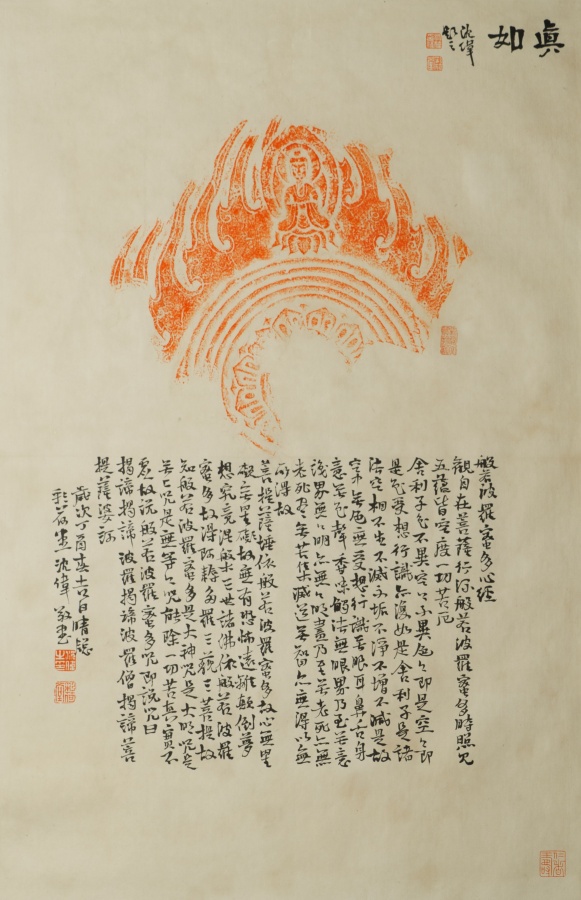 真如
沈偉題
般若波羅蜜多心經
觀自在菩薩行深般若波羅蜜多時照見
五蘊皆空度一切苦厄
舍利子色不異空空不異色色即是空空即
是色受想行識亦復如是舍利子是諸
法空相不生不滅不垢不淨不增不減是故
空中無色無受想行識無眼耳鼻舌身
意無色聲香味觸法無眼界乃至無意
識界無無明亦無無明盡乃至無老死亦無
老死盡無苦集滅道無智亦無得以無
所得故
菩提薩埵依般若波羅蜜多故心無罣
礙無罣礙故無有恐怖遠離顛倒夢
想究竟涅槃三世諸佛依般若波羅
蜜多故得阿耨多羅三藐三菩提故
知般若波羅蜜多是大神咒是大明咒是
無上咒是無等等咒能除一切苦真實不
虛故說般若波羅蜜多咒即說咒曰
揭諦揭諦波羅揭諦波羅僧揭諦菩
提薩婆訶
歲次丁酉春吉日晴窗
沈偉敬書